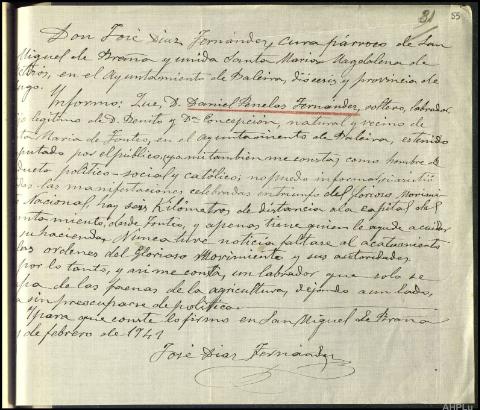 31
55
Don José Díaz Fernández, cura párroco de San
Miguel de Braña y unida Santa María Magdalena de
en el Ayuntamiento de Baleira, diócesis y provincia de
ugo.
Informo: Que, D. Daniel Penelas Fernández, soltero, labrador
legítimo de D. Benito y Dª Concepción, natural y vecino de
ta María de Fonteo, en el ayuntamiento de Baleira, es tenido
putado por el público, y a mi también me consta, como hombre de
ducta político-social y católico; no puedo informar si asistió
das las manifestaciones celebradas en triunfo del
Nacional, hay seis Kilómetros de distancia a la capital del
ntamiento, desde Fonteo, y apenas tiene quien le ayude a cuidar
su hacienda. Nunca tuve noticia faltase al acatamiento
las ordenes del Glorioso Movimiento y sus autoridades
por lo tanto, y a mi me consta, un labrador que solo se
pa de las faenas de la agricultura, dejando a un lado,
sin preocuparse de política.
Y para que conste lo firmo en San Miguel de Braña
de febrero de 1941
José Díaz Fernández
AHPLu